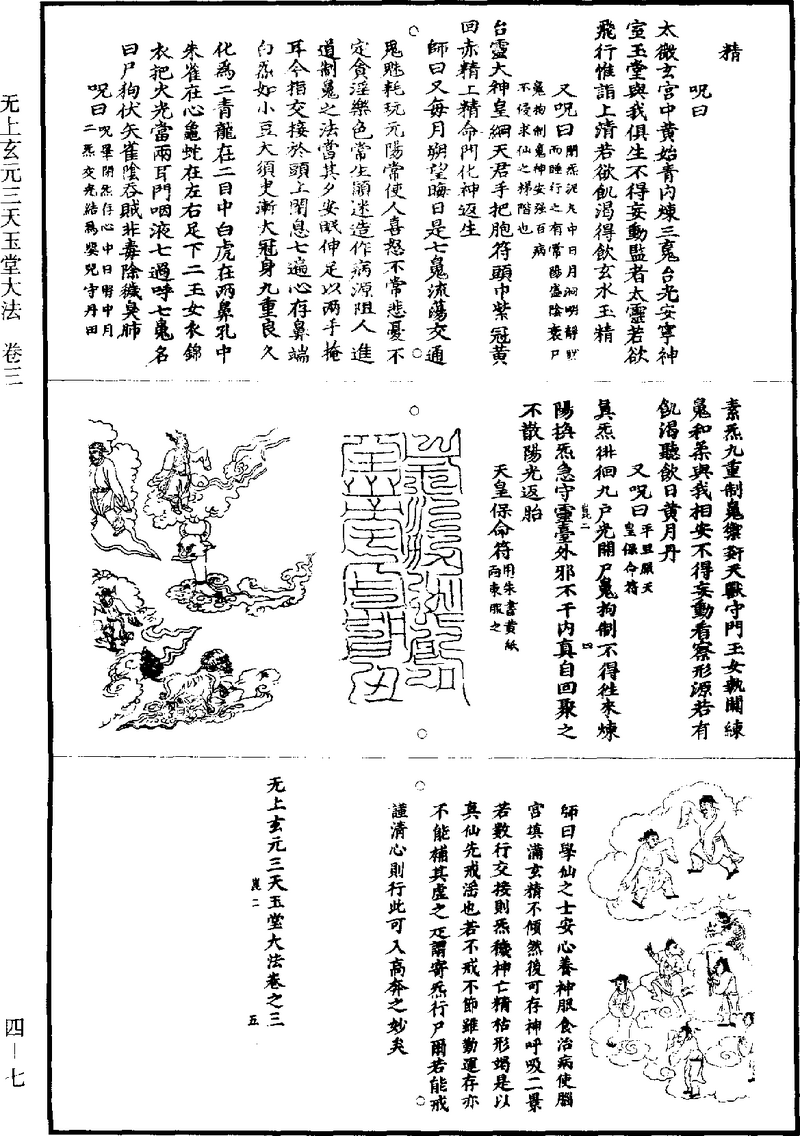 精
呪曰
太微玄宮中黃始青內煉三䰟台光安寧神
室玉堂與我俱生不得妄動監者太靈若欲
飛行惟詣上清若欲飢渴得飲玄水玉精
又呪曰
魄拘制魄神安強百病
不侵求仙之梯階也
台靈大神皇綱天君手把胞符頭巾紫冠黃
回赤精上精命門化神返生
師曰又每月朔望晦日是七魄流蕩交通
鬼魅耗玩元陽常使人喜怒不常悲憂不
定貪淫樂色常生顛迷造作病源阻人進
道制魄之法當其夕安眠伸足以兩手掩
耳令指交接於頭上閉息七遍心存鼻端
白炁如小豆大須臾漸大冠身九重良久
化為二青龍在二目中白虎在兩鼻孔中
朱雀在心龜蛇在左右足下二玉女衣錦
衣把火光當兩耳門咽液七過呼七魄名
曰尸狗伏矢雀陰吞賊非毒除穢臭肺
呪曰
呪畢閉炁存心中日腎中月
二炁交光結為嬰兒守丹田
素炁九重制魄禦奸天獸守門玉女執關練
魄和柔與我相安不得妄動看察形源若有
飢渴聽飲日黃月丹
又呪曰
平旦願天
皇保命符
真炁徘徊九戶光開尸魄拘制不得往來煉
崑二
四
陽換炁急守靈臺外邪不干內真自回聚之
不散陽光返胎
天皇保命符
用朱書黃紙
向東服之
師曰學仙之士安心養神服食治病使腦
宮填滿玄精不傾然後可存神呼吸二景
若數行交接則炁穢神亡精枯形竭是以
真仙先戒淫也若不戒不節雖勤運存亦
不能補其虛之尪謂寄炁行尸爾若能戒
謹清心則行此可入高奔之妙矣
无上玄元三天玉堂大法卷之三
崑二
五
无上玄元三天玉堂大法 卷三
四—七